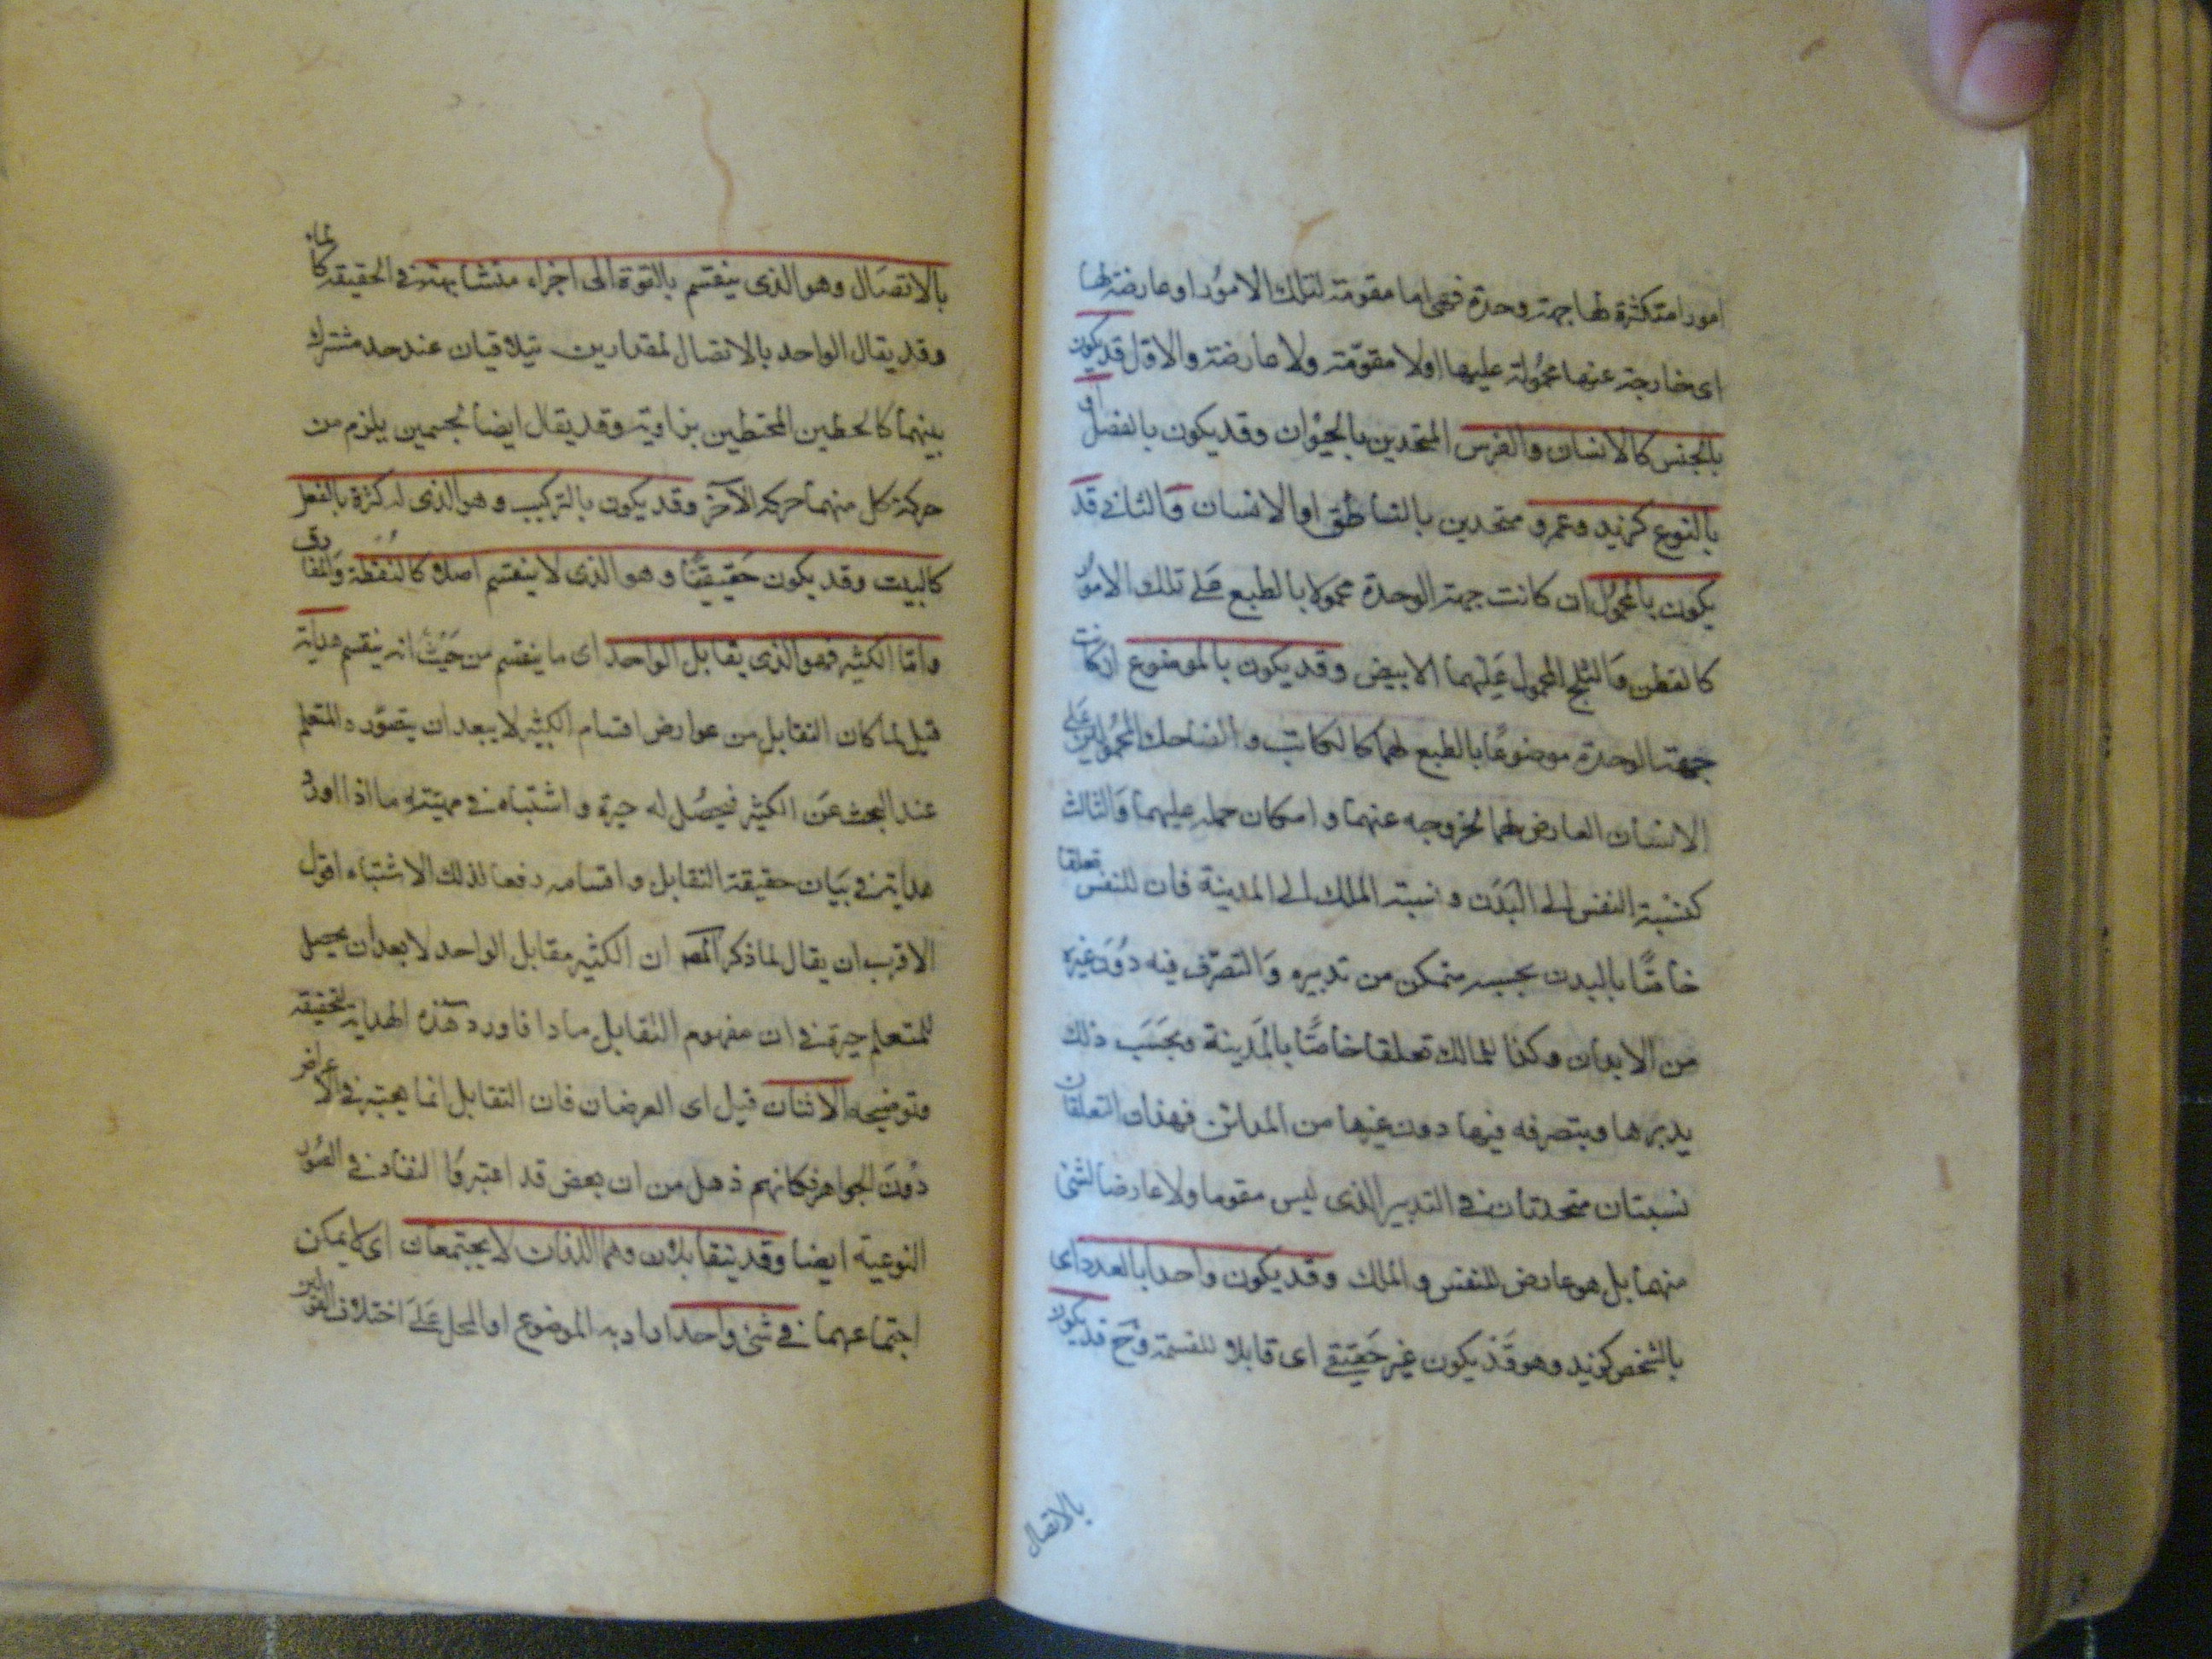 امورا متكثرة لها جهة وحدة فهى اما مقومة لتلك الامور او عارضة لها
اى خارجة عنها محمولة عليها اولا مقومة ولا عارضة والاول قد يكون
بالجنس كالانسان والفرس المتحدين بالحيوان وقد يكون بالفصل او
بالنوع كزيد وعمرو متحدين بالناطق او الانسان والثانى قد
يكون بالمحمول ان كانت جهة الوحدة محمولا بالطبع على تلك الامور
كالقطن والثلج المحمول عليهما الابيض وقد يكون بالموضوع ان كانت
جهة الوحدة موضوعا بالطبع لهما كالكاتب والضاحك المحمولين على
الانسان العارض لهما لخروجه عنهما وامكان حمله عليهما والثالث
كنسبة النفس الى البدن ونسبة الملك الى المدينة فان للنفس تعلقا
خاصا بالبدن بحسبه يتمكن من تدبيره والتصرف فيه دون غيره
من الابدان وكذا للمالك تعلقا خاصا بالمدينة وبحسب ذلك
يدبرها ويتصرف فيها دون غيرها من المدائن فهذان التعلقان
نسبتان متحدتان فى التدبير الذى ليس مقوما ولا عارضا لشئ
منهما بل هو عارض للنفس والملك وقد يكون واحدا بالعدد اى
بالشخص كزيد وهو قد يكون غير حقيقى اى قابلا للقسمة وح قد يكون
بالاتصال
بالاتصال وهو الذى ينقسم بالقوة الى اجزاء متشابهة فى الحقيقة كالماء
وقد يقال الواحد بالاتصال لمقدارين يتلاقيان عند حد مشترك
بينهما كالخطين المحيطين بزاوية وقد يقال ايضا لجسمين يلزم من
حركة كل منهما حركة الآخر وقد يكون بالتركيب وهو الذى له كثرة بالفعل
كالبيت وقد يكون حقيقيا وهو الذى لا ينقسم اصلا كالنقطة والمفارق
واما الكثير فهو الذى يقابل الواحد اى ما ينقسم من حيث انه ينقسم هداية
قيل لما كان التقابل من عوارض اقسام الكثير لا يبعد ان يتصوره المتعلم
عند البحث عن الكثير فيحصل له حيرة واشتباه فى مهيته ما اذا اورد
هداية فى بيان حقيقة التقابل واقسامه دفعا لذلك الاشتباه اقول
الاقرب ان يقال لما ذكر المص ان الكثير مقابل الواحد لا بعد ان يحصل
للمتعلم حيرة فى ان مفهوم التقابل ماذا فاورد هذه الهداية لتحقيقه
وتوضيحه الاثنان قيل اى العرضان فان التقابل انما يعتبر فى الاعراض
دون الجواهر فكانهم ذهل من ان بعض قد اعتبروا التضاد فى الصور
النوعية ايضا وقد يتقابلان وهما اللذان لا يجتمعان اى لا يمكن
اجتماعهما فى شئ واحد اراد به الموضوع او المحل على اختلاف القولين